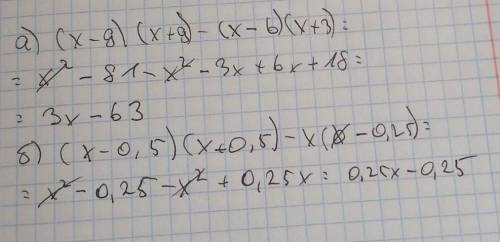 а) (x-9)(x+9)-(x-6)(x+3)=
= x² - 81 - x² - 3x + 6x + 18 =
= 3x - 63
б) (x-0,5)(x+0,5)-x(x-0,25)=
= x² - 0,25 - x² + 0,25x = 0,25x - 0,25